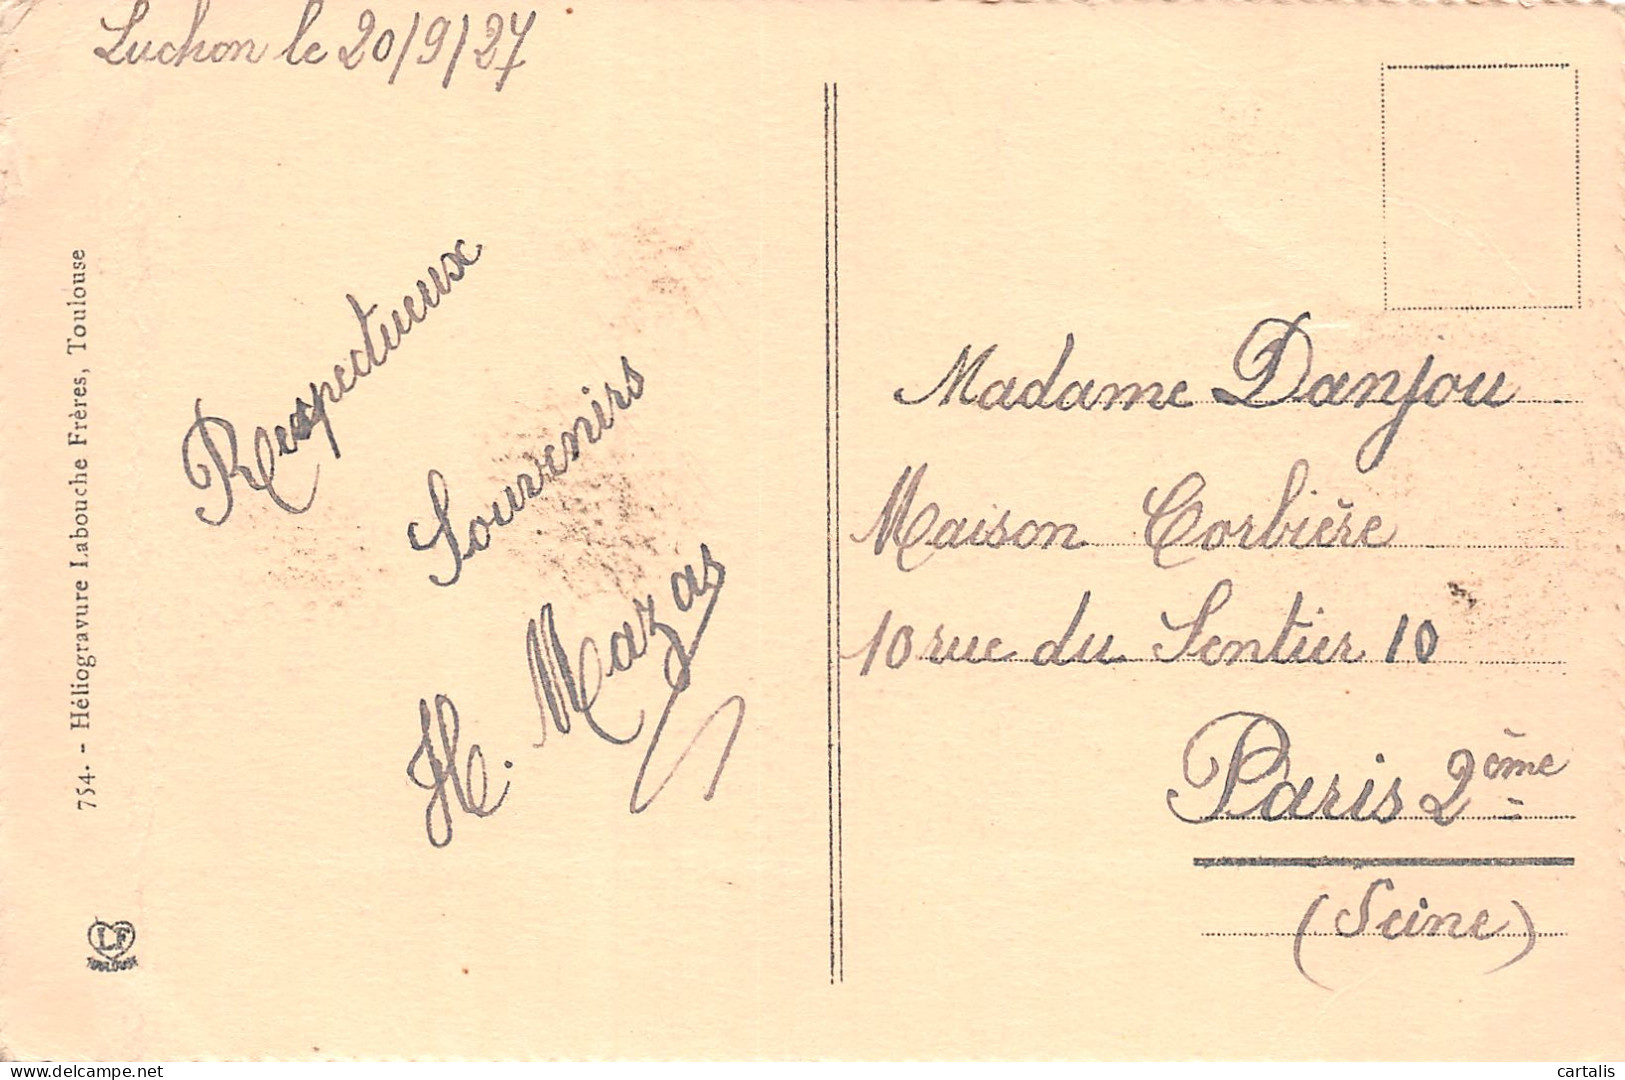 Luchon le 20/9/27
Respectueux
Souvenirs
H. Mazas
754. - Héliogravure Labouche Frères, Toulouse
LF
TOULOUSE
Madame Danjou
Maison Corbière
10 rue du Sentier 10
Paris 2ème
(Seine)
delcampe.net
cartalis